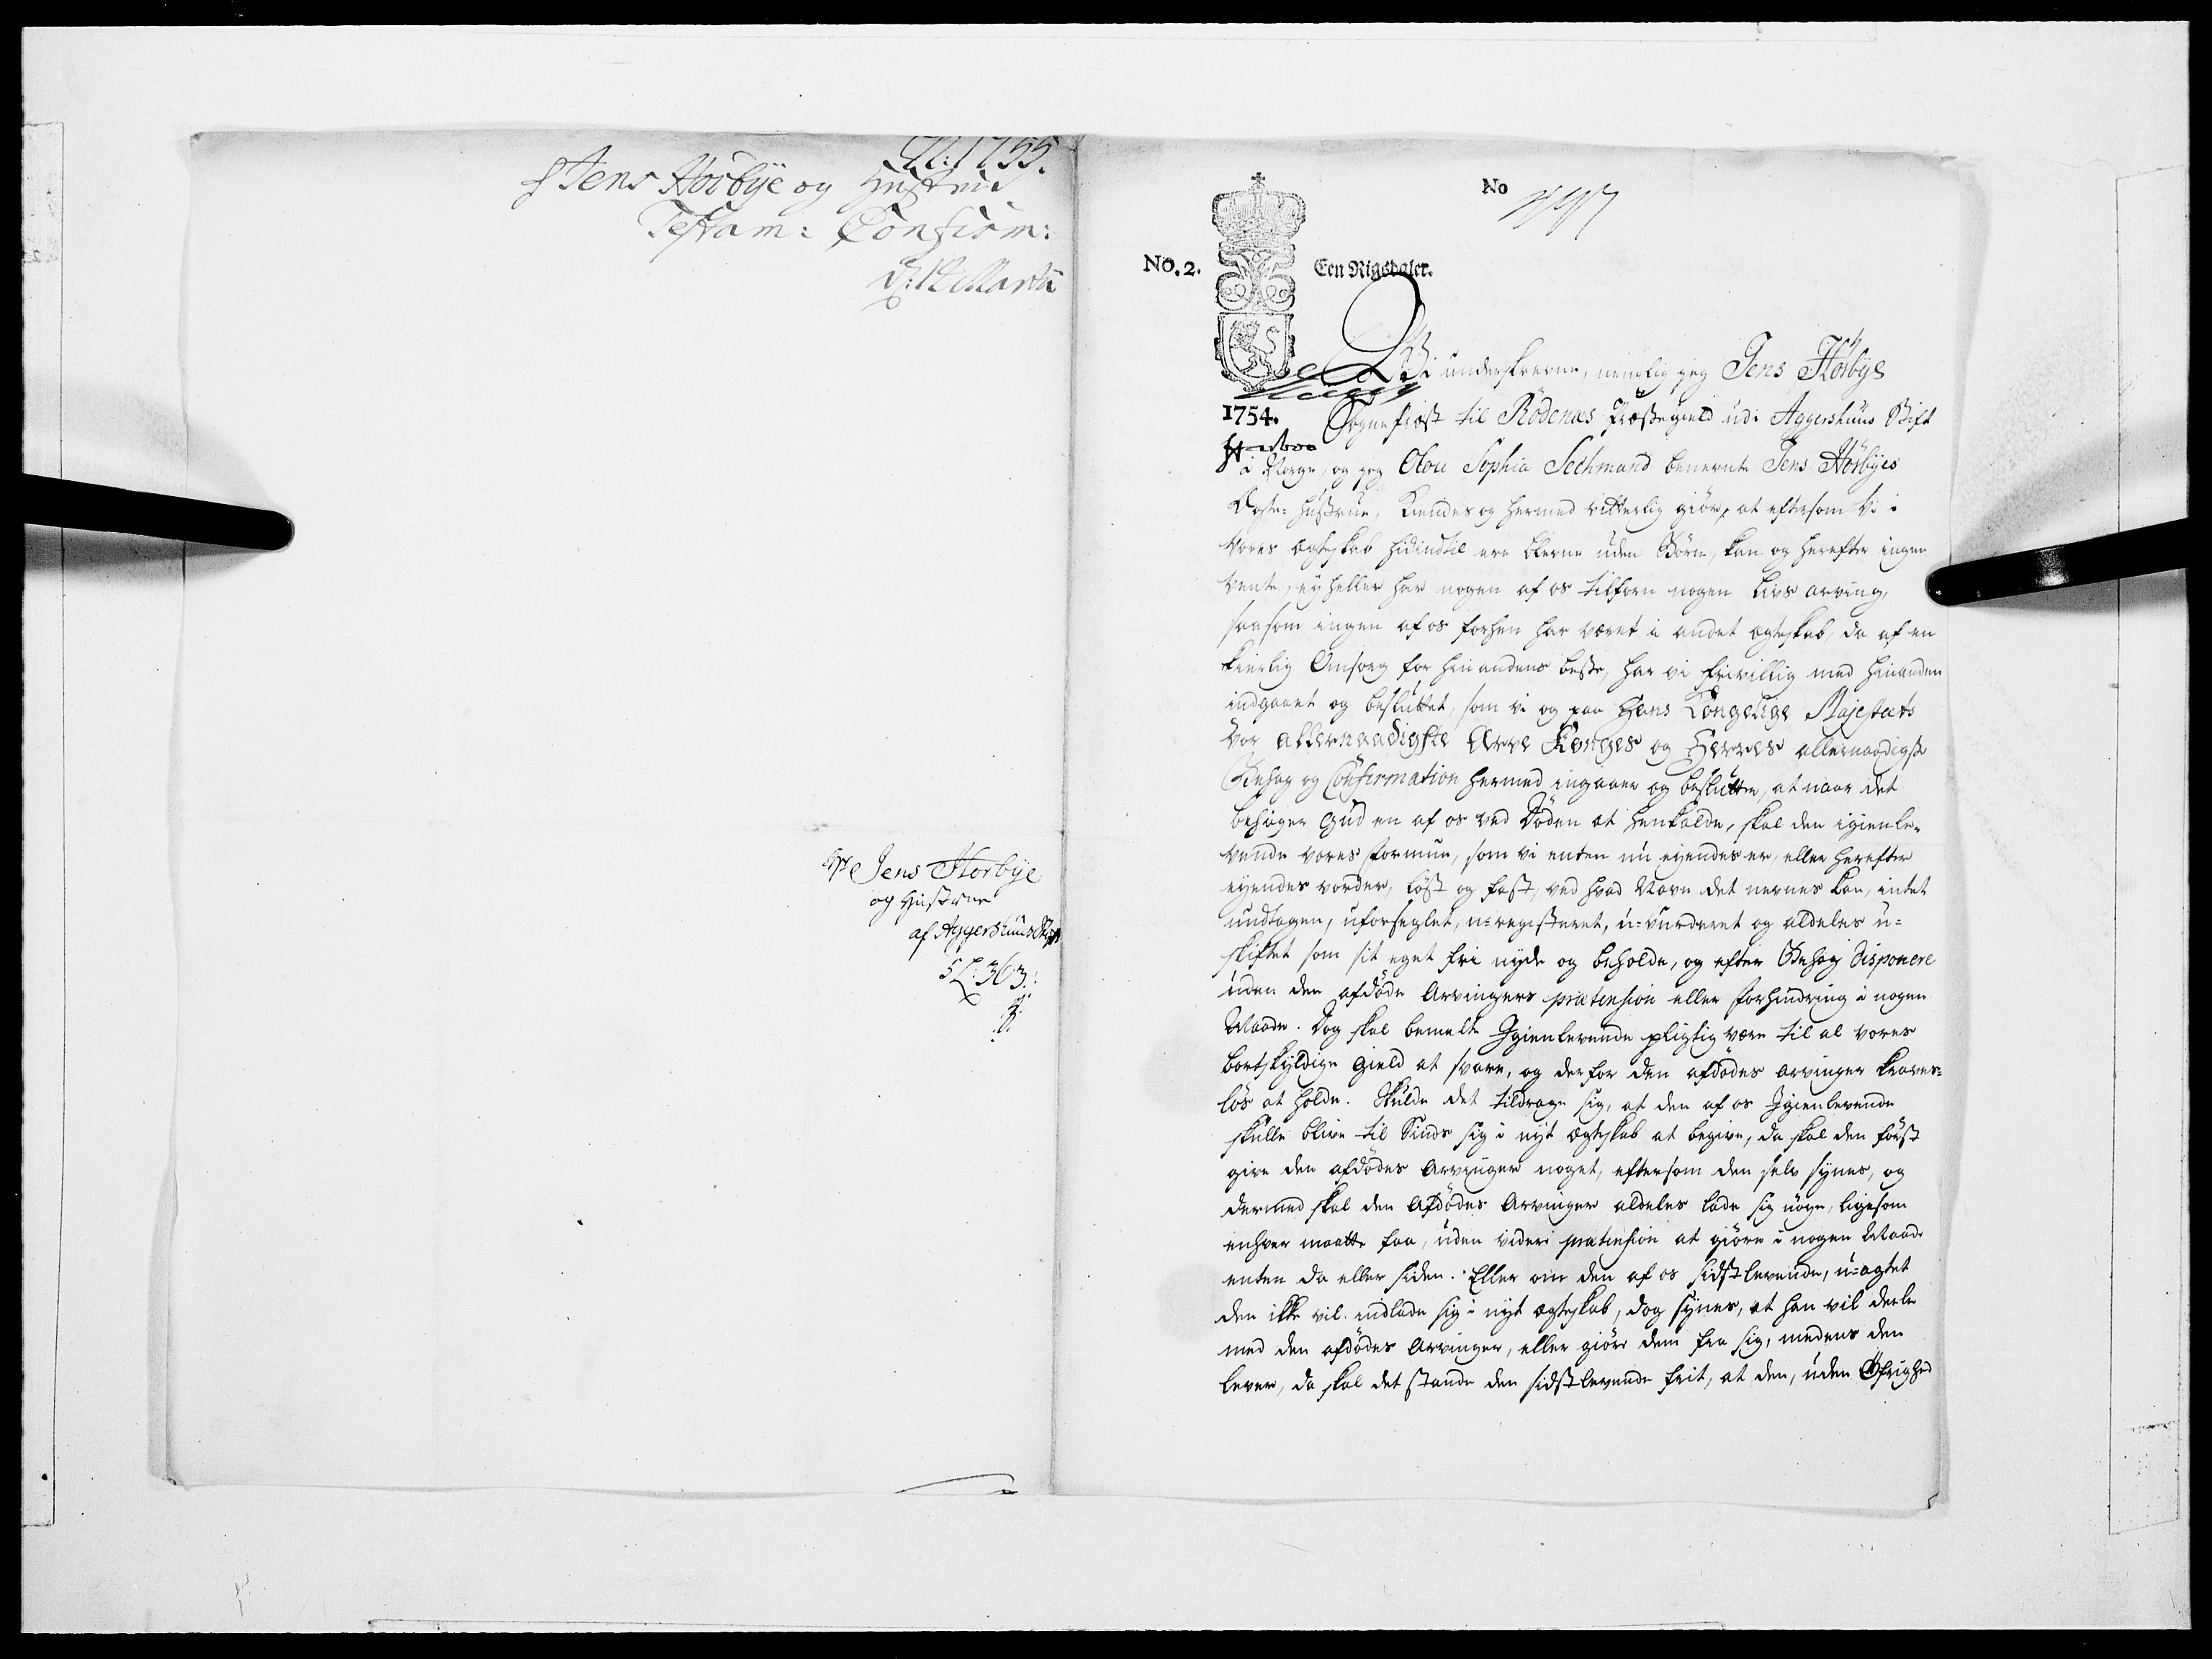 1755.
Jens Hörbÿe og Hustrue
Testam: Confirm:
d: 12 Martii
Jens Hörbÿe
og Hustrue
af Aggershuus Stift
5 L: 363.
No
No. 2.
Een Rigsdaler.
Wi underskrevne, nemlig jeg Jens Hörbÿe
1754.
Sognepræst til Rödenæs Præstegield udi Aggershuus Stift
i Norge, og jeg Olou Sophia Sechmand benevnte Jens Hörbÿes
Ægte-Hustrue, Kiendes og hermed vitterlig giöre, at eftersom Vi i
vores Ægteskab hidindtil ere blevne uden Börn, kan og herefter ingen
vente, ey heller har nogen af os tilforn nogen Livs arving,
saasom ingen af os forhen har været i andet ægteskab, da af en
kierlig Omsorg for hinandens beste, har vi frivillig med hinanden
indgaaet og besluttet, som vi og paa Hans Kongelige Majestæts
vor allernaadigste Arve Konges og Herres allernaadigste
Behag og Confirmation hermed ingaaer og beslutter, at naar det
behager Gud en af os ved Döden at henkalde, skal den igienle-
vende vores formue, som vi enten nu eyendes er, eller herefter
eyendes vorder, löst og fast, ved hvad Navn det nevnes kan, intet
undtagen, uforseglet, u-registeret, u-vurderet og aldeles u-
skiftet som sit eget fri nyde og beholde, og efter Behag disponere
uden den afdöde Arvingers prætension eller forhindring i nogen
Maade. Dog skal bemelte Igienlevende pligtig være til al vores
bortskyldige gield at svare, og derfor den afdödes arvinger kraves-
lös at holde. Skulde det tildrage sig, at den af os Igienlevende
skulle blive til Sinds sig i nyt ægteskab at begive, da skal den först
give den afdödes Arvinger noget, eftersom den selv synes, og
dermed skal den Afdödes Arvinger aldeles lade sig nöye, ligesom
enhver maatte faa, uden videre prætension at giöre i nogen Maade
enten da eller siden. Eller om den af os sidstlevende, u-agtet
den ikke vil indlade sig i nyt ægteskab, dog synes, at han vil deele
med den afdödes Arvinger, eller giöre dem fra sig, medens den
lever, da skal det stande den sidstlevende frit, at den, uden Öfrighed